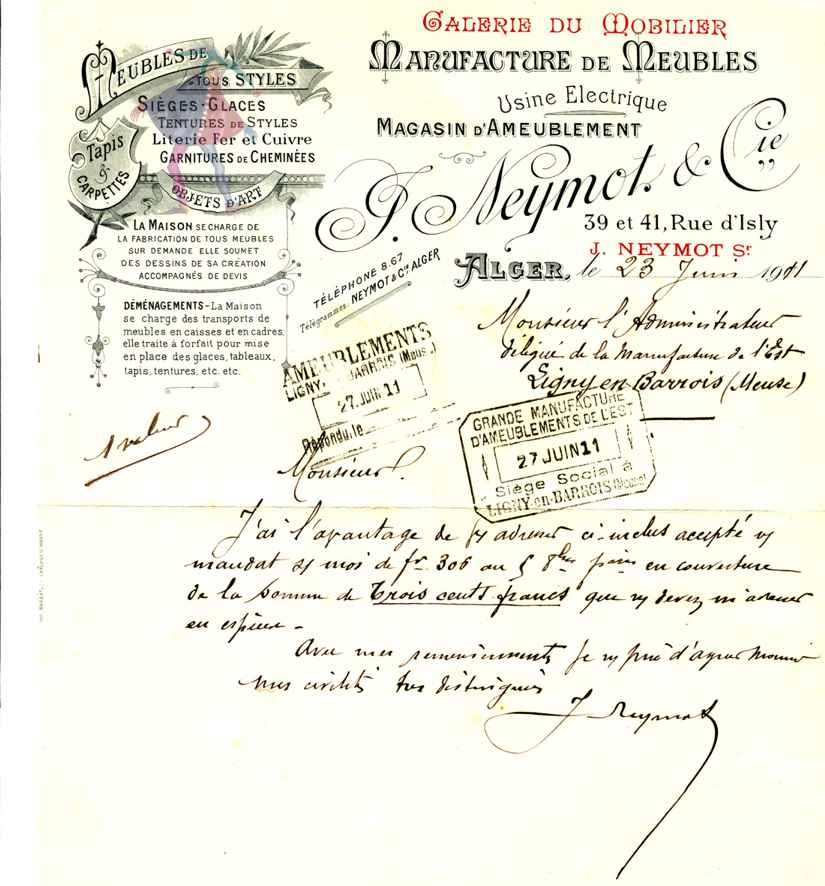 GALERIE DU MOBILIER
MANUFACTURE DE MEUBLES
Usine Electrique
MAGASIN D'AMEUBLEMENT
J. Neymot. & Cie
39 et 41, Rue d'Isly
J. NEYMOT Sr
ALGER, le 23 Juin 1911
MEUBLES DE
TOUS STYLES
SIÈGES-GLACES
TENTURES DE STYLES
Literie Fer et Cuivre
GARNITURES DE CHEMINÉES
Tapis
&
CARPETTES
OBJETS D'ART
LA MAISON SE CHARGE DE
LA FABRICATION DE TOUS MEUBLES
SUR DEMANDE ELLE SOUMET
DES DESSINS DE SA CRÉATION
ACCOMPAGNÉS DE DEVIS
DÉMÉNAGEMENTS - La Maison
se charge des transports de
meubles en caisses et en cadres,
elle traite à forfait pour mise
en place des glaces, tableaux,
tapis, tentures, etc. etc.
TÉLÉPHONE 8.67
Télégrammes: NEYMOT & Cie ALGER
Monsieur l'Administrateur
délégué de la Manufacture de l'Est
Ligny en Barrois (Meuse)
AMEUBLEMENTS
LIGNY, BARROIS (Meus
27 JUIN 11
Répondu, le
GRANDE MANUFACTURE
D'AMEUBLEMENTS DE L'EST
27 JUIN 11
Siège Social à
LIGNY-en-BARROIS (Meuse)
Monsieur.
J'ai l'avantage de adresser ci-inclus accepté
mandat mois de fr 306 au en couverture
de la somme de trois cents francs que devez m'adresser
en espèces -
Avec mes remerciements je prie d'agréer Monsieur
mes civilités très distinguées
J Neymot